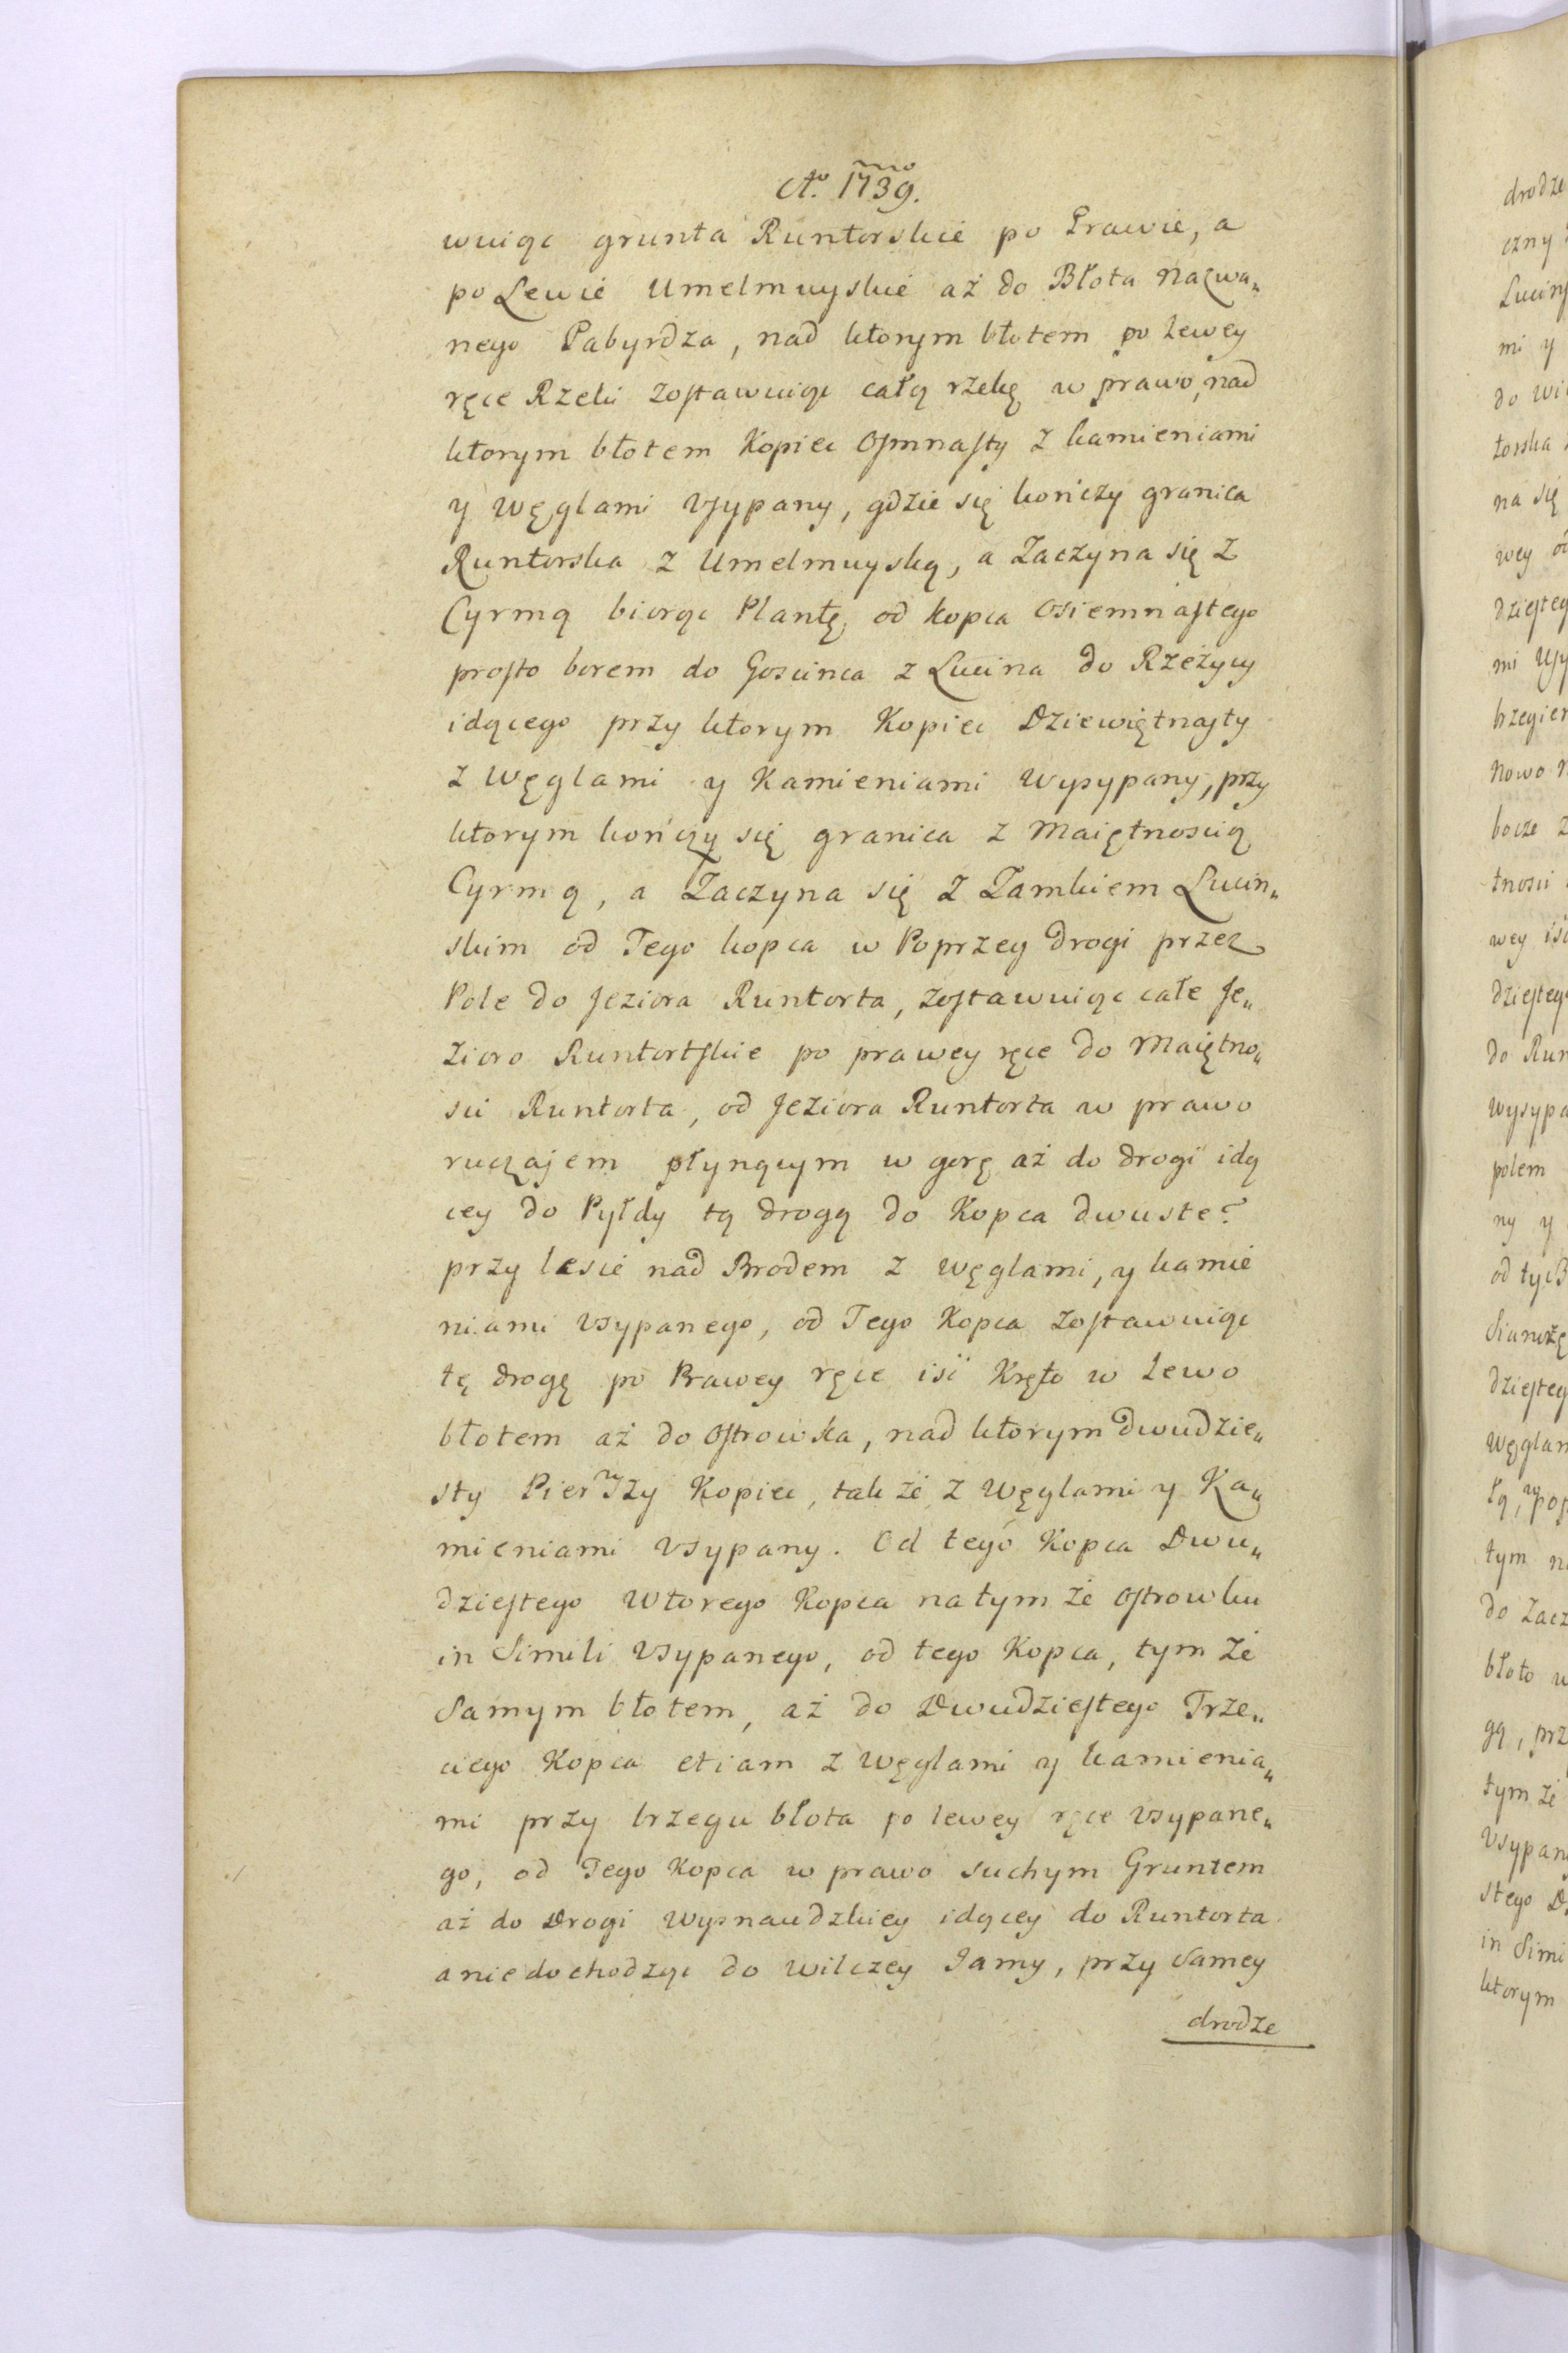 Ao. 1739.
wuiąc grunta Runtorskie po Prawie, a
po Lewie Umelmuyskie aż do Błota Nazwa„
nego Pabyrdza, nad ktorym błotem po Lewey
ręce Rzeki zostawuiąc całą rzekę w prawo, nad
ktorym błotem Kopiec Osmnasty z kamieniami
y Węglami Vsypany, gdzie się kończy granica
Runtorska z Umelmuyską, a Zaczyna się z
Cyrmą biorąc Plantę, od kopca Osiemnastego
prosto borem do Goscinca z Lucina do Rzeżycy
idącego przy ktorym Kopiec Dziewiętnasty
z Węglami y Kamieniami Wysypany, przy
ktorym kończy się granica z Maiętnoscią
Cyrmą, a Zaczyna się z Zamkiem Lucin„
skim od Tego kopca w Poprzey drogi przez
Pole do Jeziora Runtorta, zostawuiąc całe Je„
zioro Runtortskie po prawey ręce do Maiętno„
sci Runtorta, od Jeziora Runtorta w prawo
ruczajem płynącym w gorę aż do drogi idą
cey do Pyłdy tą drogą do Kopca dwuste?
przy lesie nad Brodem z węglami, y kamie
niami Vsypanego, od Tego Kopca zostawuiąc
tę drogę po Prawey ręce iść Kręto w Lewo
błotem aż do Ostrowka, nad ktorym dwudzie„
sty Pierwszy Kopiec, tak że z Węglami y Ka„
mieniami Vsypany. Od tego Kopca Dwu„
dziestego Wtorego Kopca natym że Ostrowku
in Simili Vsypanego, od tego Kopca, tym że
Samym błotem, aż do Dwudziestego Trze„
ciego Kopca etiam z Węglami y kamienia„
mi przy brzegu błota po lewey ręce Vsypane„
go, od Tego Kopca w prawo suchym Gruntem
aż do Drogi Wypnaudzkiey idącey do Runtorta
a niedochodząc do Wilczey Jamy, przy Samey
drodze